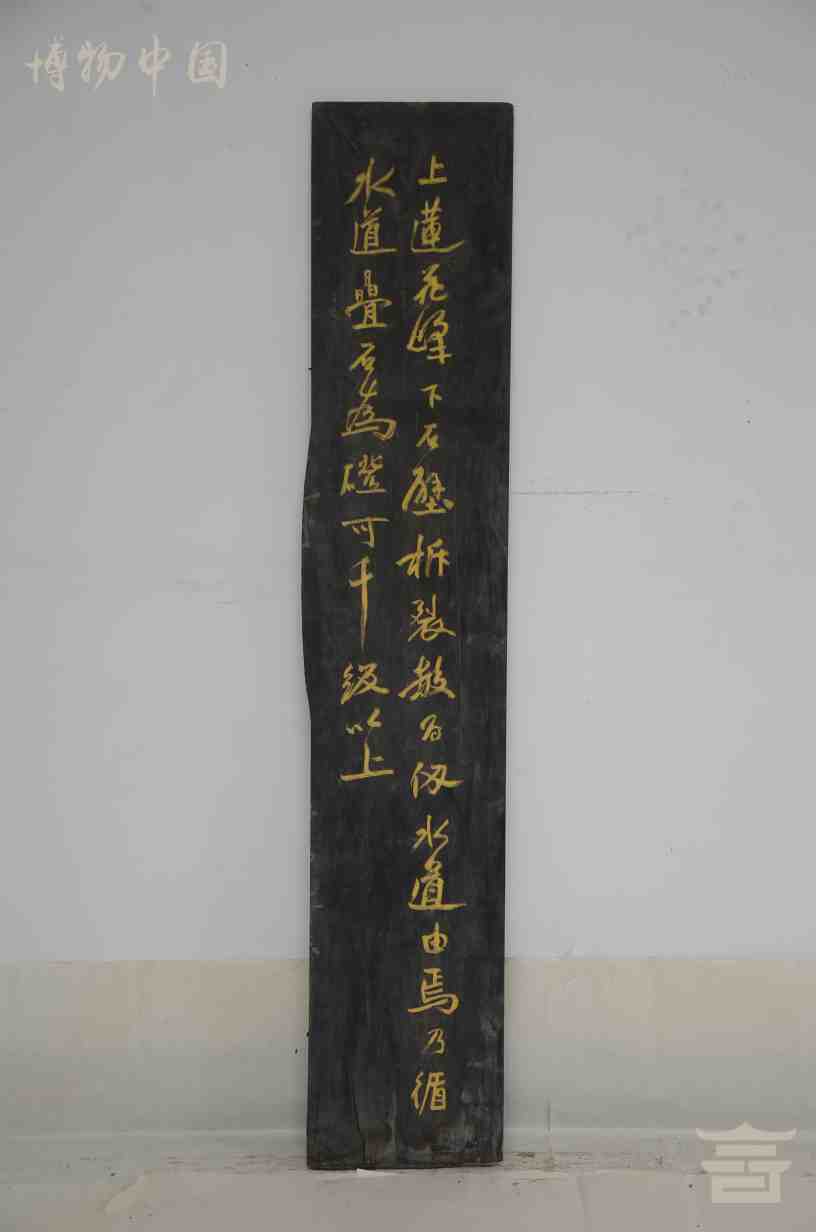 博物中国
上蓮花峰下石壁柝裂數百仭水道由焉乃循
水道疊石為磴可千級以上